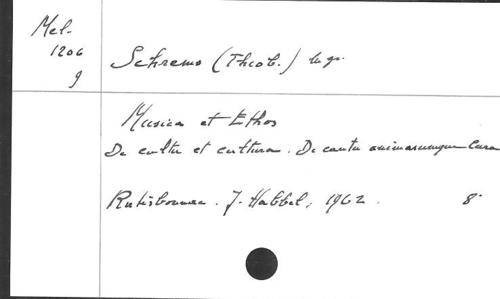 Mel.
1206
g
Schrems (Theob.)
Musica et Ethos
De cultu et cultura. De cantu animarumque Cura
Ratisbonae. J. Habbel, 1962. 8°